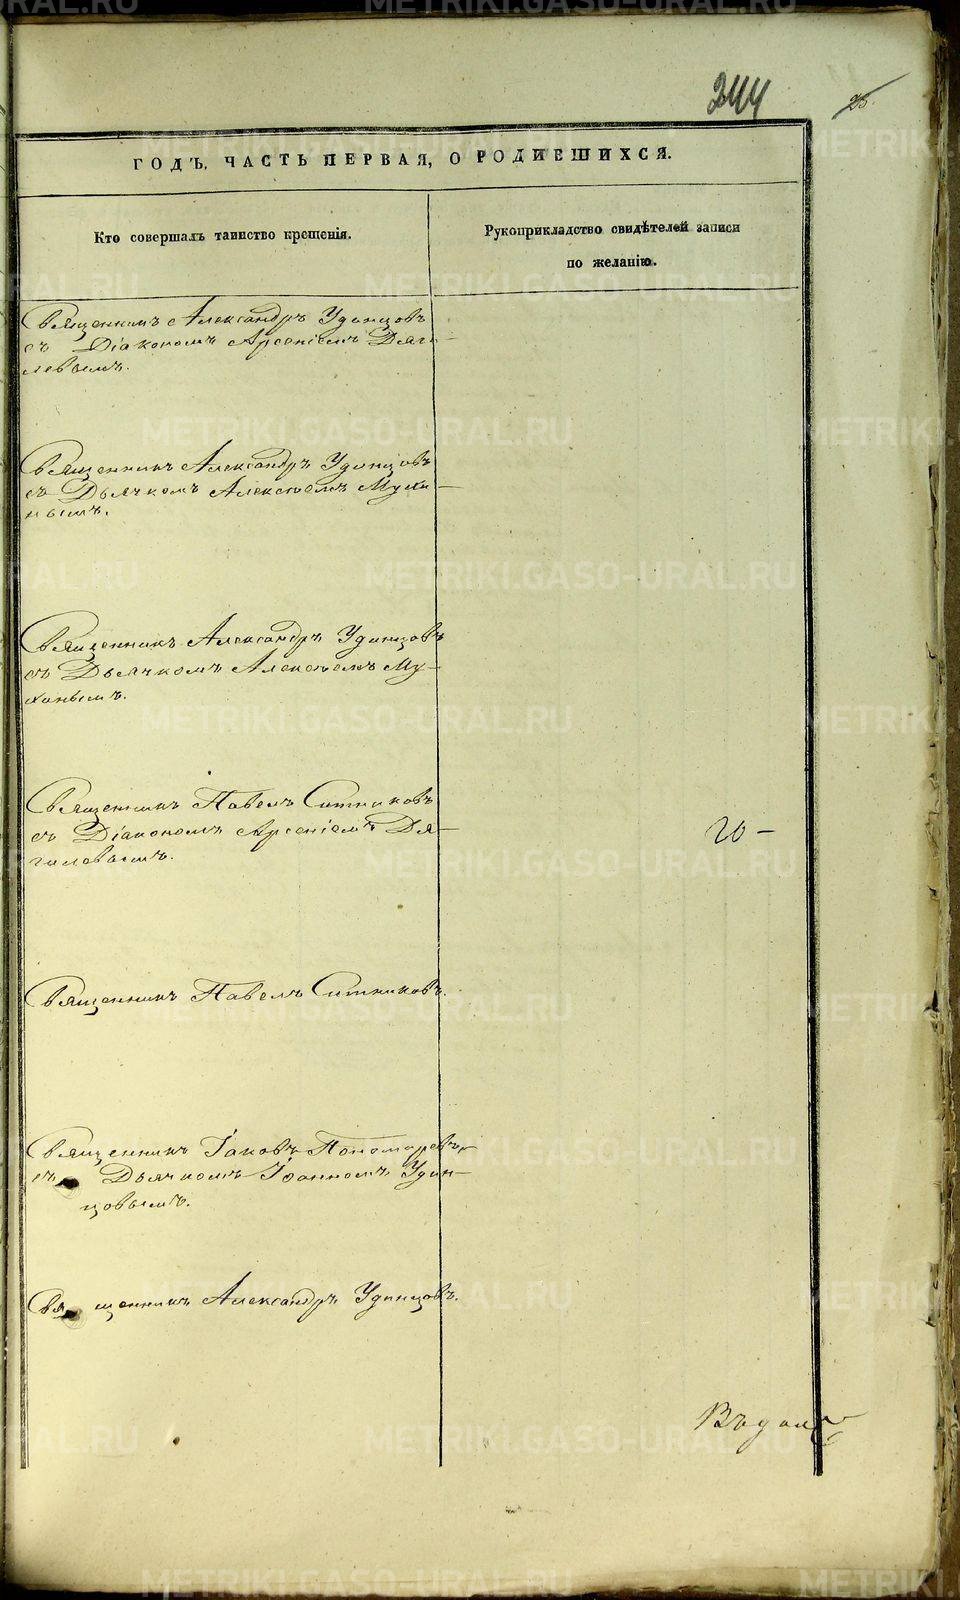 244
25.
ГОДЪ, ЧАСТЬ ПЕРВАЯ, О РОДИВШИХСЯ.
Кто совершалъ таинство крещенія.
Рукоприкладство свидѣтелей записи
по желанію.
Священникъ Александръ Удинцовъ
съ Діакономъ Арсеніемъ Дяги-
левымъ.
Священникъ Александръ Удинцовъ
съ Дьячкомъ Алексѣемъ Мухи-
нымъ.
Священникъ Александръ Удинцовъ
съ Дьячкомъ Алексѣемъ Му-
хинымъ.
Священникъ Павелъ Ситниковъ
съ Діакономъ Арсеніемъ Дя-
гилевымъ.
20 –
Священникъ Павелъ Ситниковъ.
Священникъ Іаковъ Пономаревъ
съ Дьячкомъ Іоанномъ Удин-
цовымъ.
Священникъ Александръ Удинцовъ.
METRIKI.GASO-URAL.RU